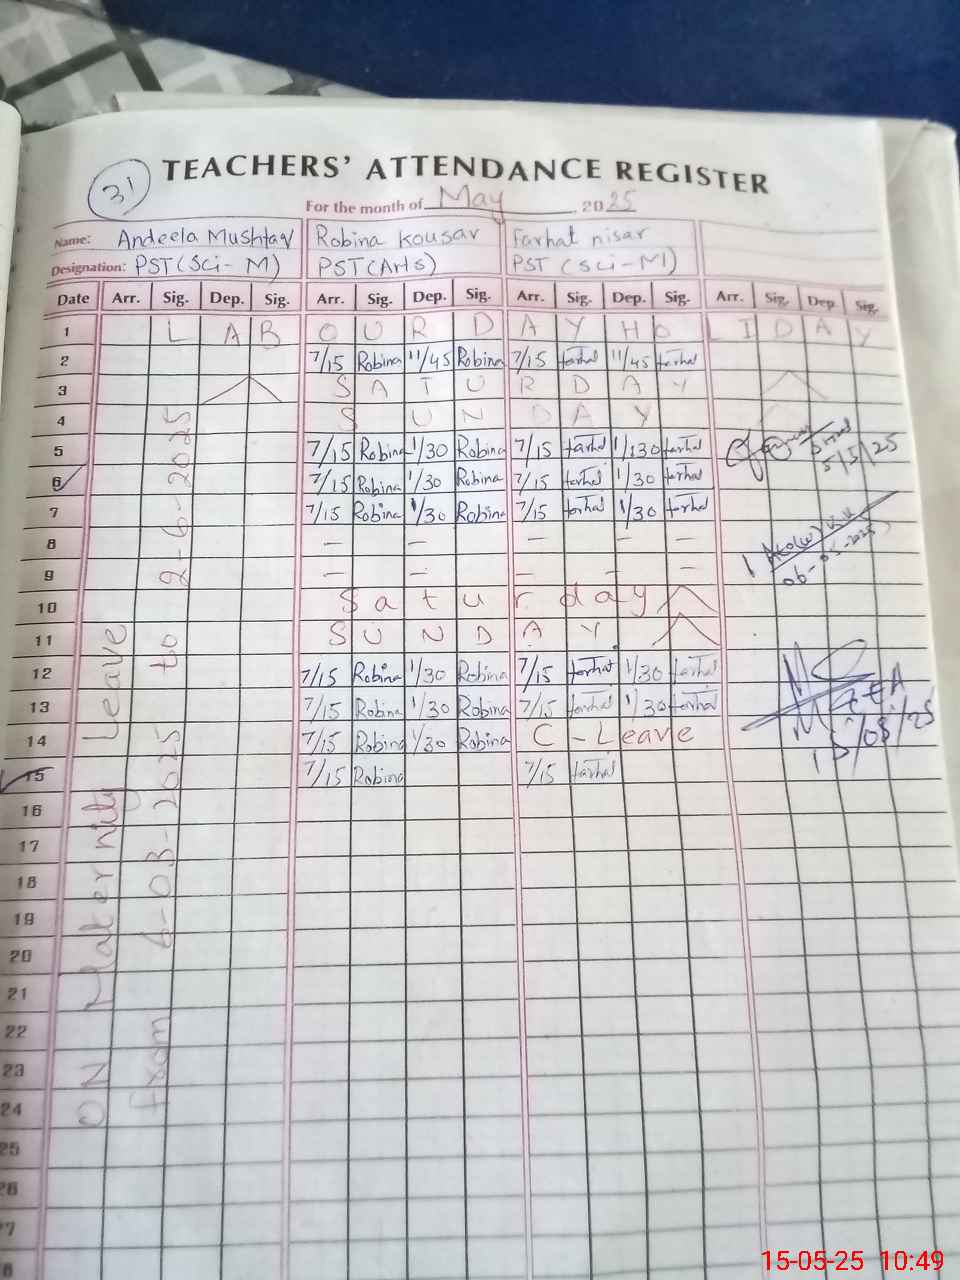 31
TEACHERS' ATTENDANCE REGISTER
For the month of May 2025
Name: Andeela Mushtaq Robina Kousar Farhat nisar
Designation: PST (Sci-M) PST (Arts) PST (Sci-M)
Date Arr. Sig. Dep. Sig. Arr. Sig. Dep. Sig. Arr. Sig. Dep. Sig. Arr. Sig. Dep. Sig.
1 L A B O U R D A Y H O L I D A Y
2 7/15 Robina 11/45 Robina 7/15 farhat 11/45 farhat
3 S A T U R D A Y
4 S U N D A Y
5 7/15 Robina 1/30 Robina 7/15 farhat 1/130 farhat
5/5/25
6 7/15 Robina 1/30 Robina 7/15 farhat 1/30 farhat
7 7/15 Robina 1/30 Robina 7/15 farhat 1/30 farhat
8 — — — — —
06-05-2025
9 — — — — —
10 S a t u r d a y
11 S U N D A Y
12 7/15 Robina 1/30 Robina 7/15 farhat 1/30 farhat
13 7/15 Robina 1/30 Robina 7/15 farhat 1/30 farhat
14 7/15 Robina 1/30 Robina C - Leave
15 7/15 Robina 7/15 farhat
16
17
18
19
20
21
22
23
24
25
26
27
8
ON Maternity Leave
from 6-03-2025 to 2-6-2025
15-05-25 10:49